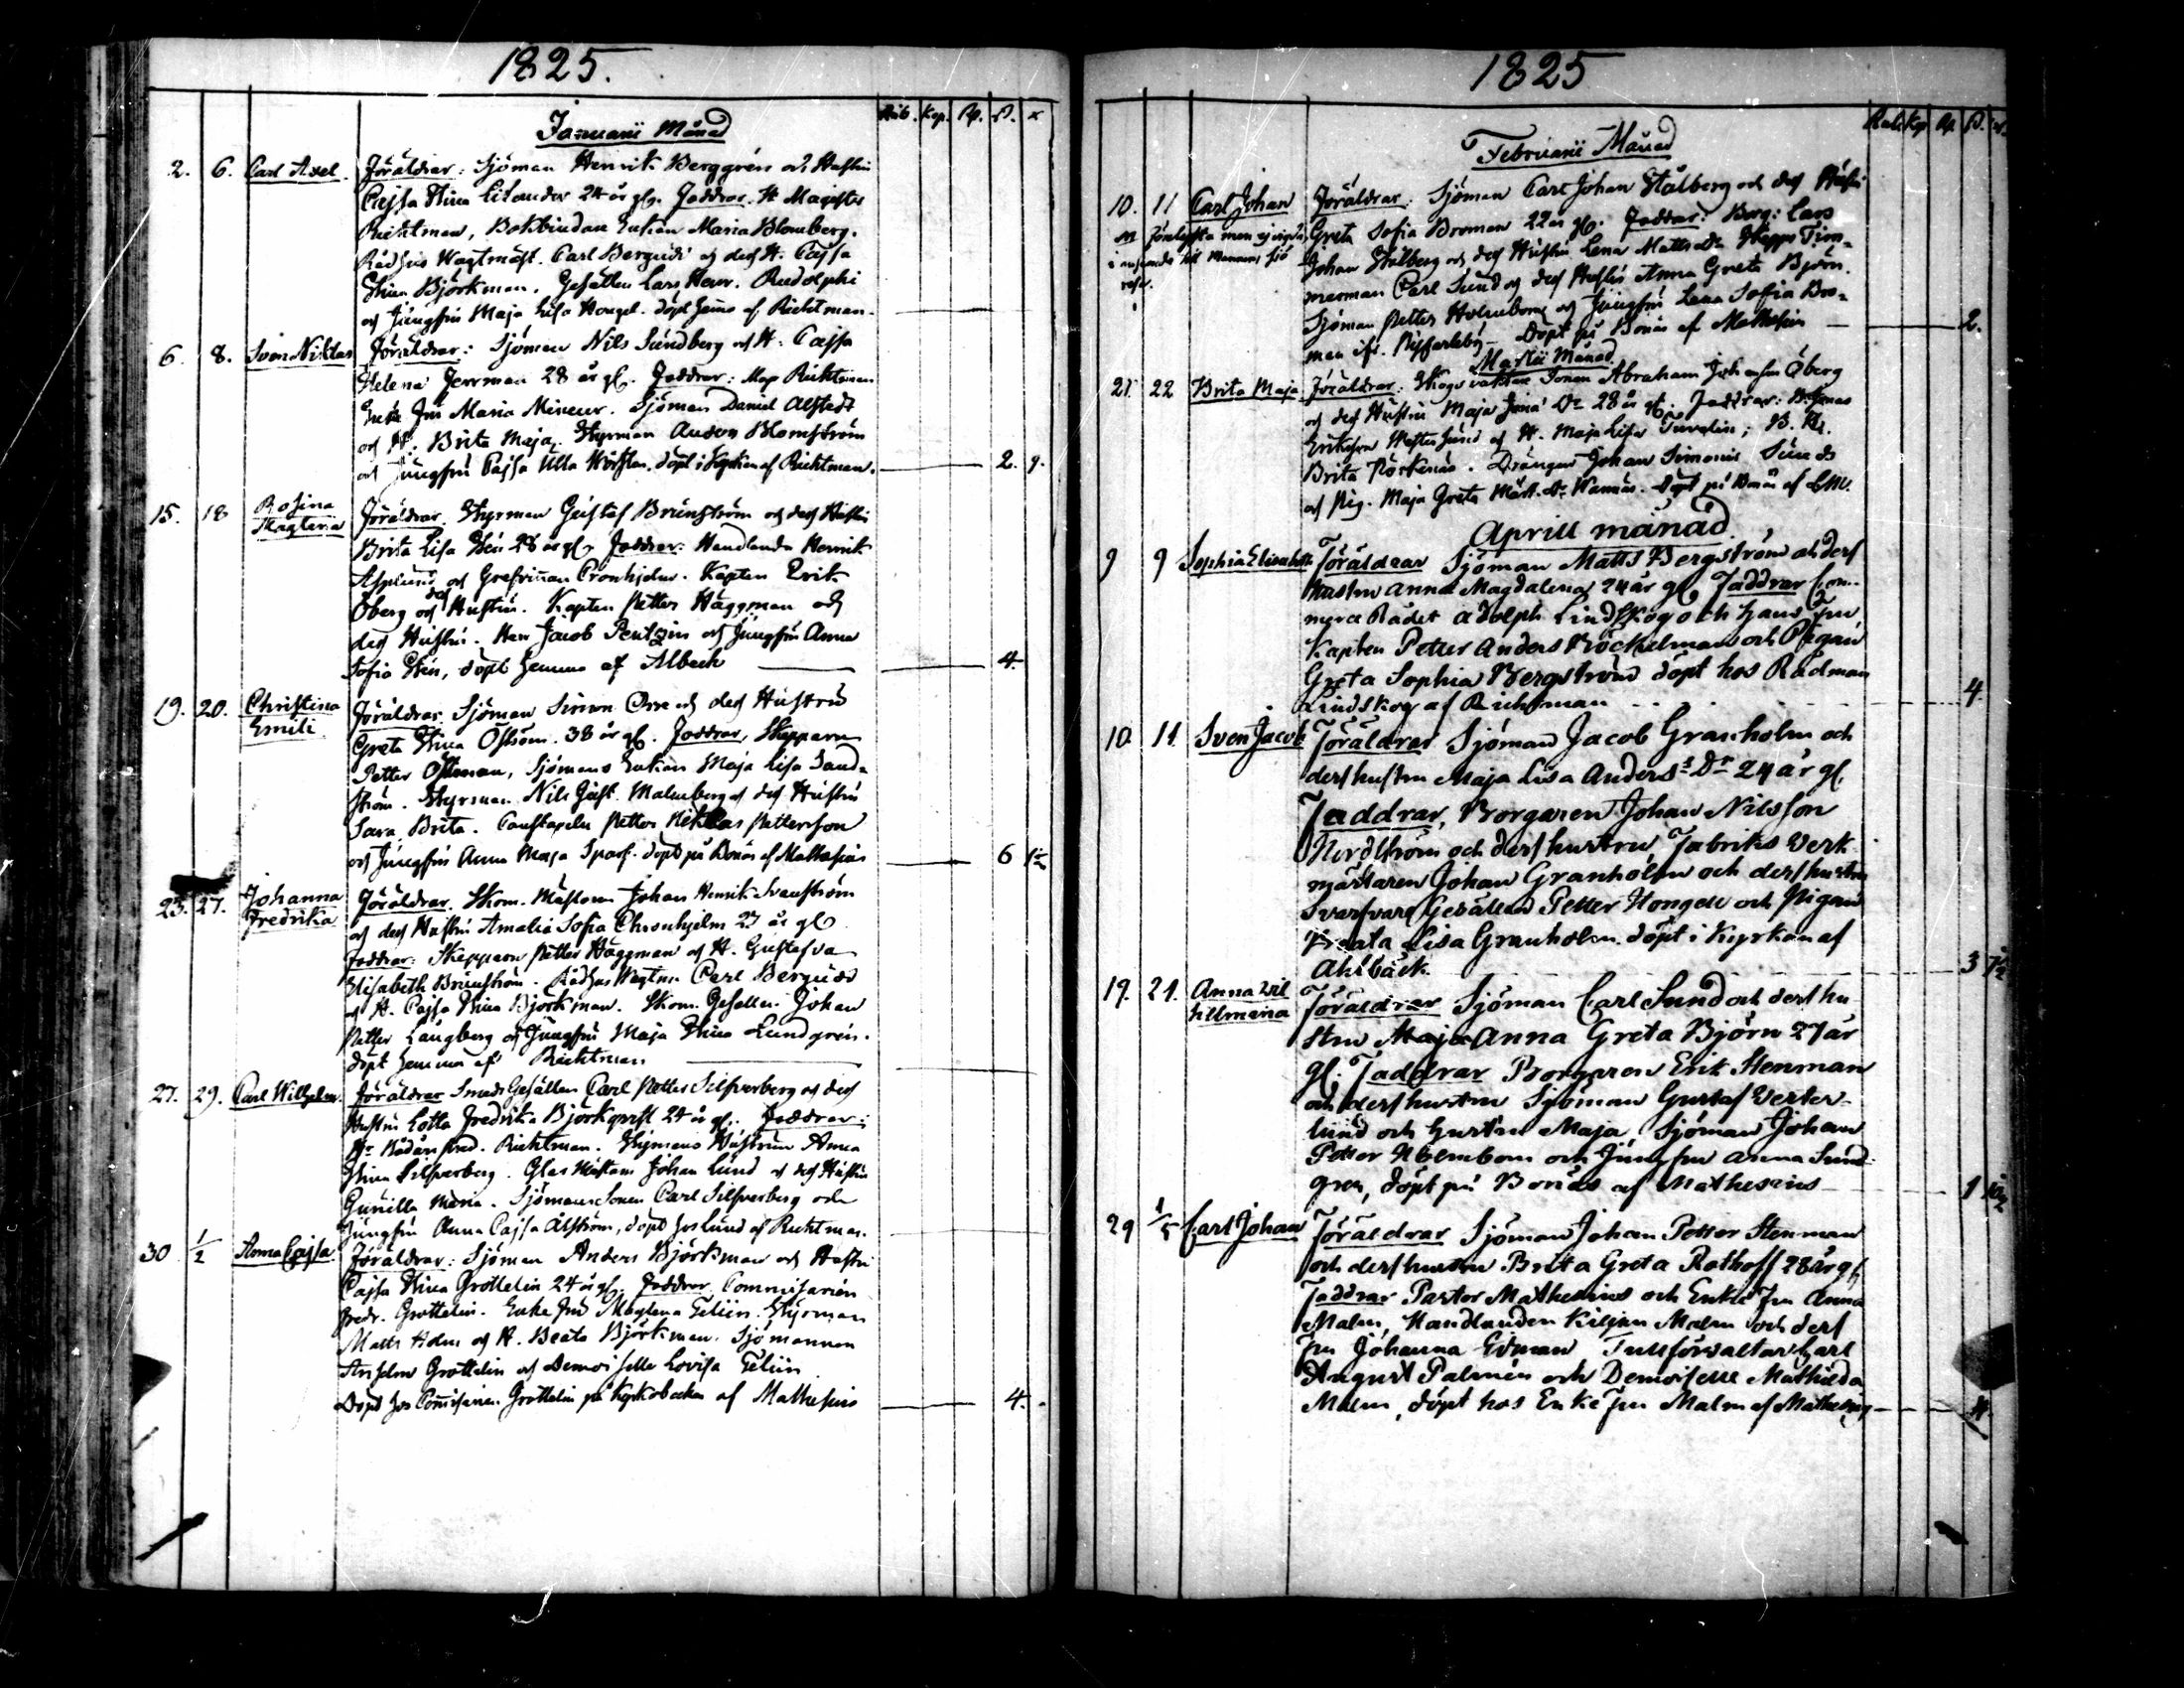 1825.
Januarii Månad
Rub. Kop. Rp. S. r
2. 6. Carl Axel. Föräldrar: Sjöman Henrik Berggrén och Hustru
Cajsa Stina Lilander 24 år gl. Faddrar. H. Magister
Richtman, Bokbindare Enkan Maria Blomberg.
Rådhus Wagtmäst. Carl Bergudd och des H. Cajsa
Stina Björkman. Gesällen Lars Henr. Rudolphi
och Jungfru Maja Lisa Hongel. döpt hema af Richtman.
6. 8. Sven Niklas Föräldrar: Sjöman Nils Sundberg och H. Cajsa
Helena Jerrman 28 år gl. Faddrar: Mag Richtman
Enke Fru Maria Mineur. Sjöman Daniel Alstedt
och H. Brita Maja. Styrman Anders Blomström
och Jungfru Cajsa Ulla döpt i Kyrkan af Richtman. 2. 9.
15. 18 Rosina Magtena Föräldrar. Styrman Gustaf Brunström och des Hustru
Brita Lisa Stén 28 år gl. Faddrar: Handlande Henrik
Asplund och Grefvinnan Cronhjelm. Kapten Erik
Öberg och des Hustru. Kapten Petter Häggman och
des Hustru. Herr Jacob Pentzin och Jungfru Anna
Sofia Stén, döpt hemma af Alback 4.
19. 20. Christina Emili Föräldrar. Sjöman Simon Orre och des Hustru
Greta Stina Öström. 38 år gl. Faddrar, Skepparn
Petter Östman, Sjömans Enkan Maja Lisa Sand-
ström. Styrman Nils Gust. Malmberg och des Hustru
Sara Brita. Constapeln Petter Niklas Pettersson
och Jungfru Anna Maja Sparf. döpt på Bonäs af Mathesius 6 1½
23. 27. Johanna Fredrika Föräldrar. Skom. Mästaren Johan Henrik Svanström
och des Hustru Amalia Sofia Chronhjelm 27 år gl
Faddrar: Skepparn Petter Häggman och H. Gustafva
Elisabeth Brunström. Rådhus Wagtm. Carl Bergudd
och H. Cajsa Stina Björkman. Skom. Gesällen Johan
Petter Långberg och Jungfru Maja Stina Lundgrén.
döpt hemma af Richtman
27. 29. Carl Wilhelm. Föräldrar Smeds Gesällen Carl Petter Silfverberg och des
Hustru Lotta Fredrika Björkqvist 24 år gl. Faddrar:
Hr Rådman Fred. Richtman. Styrmans Hustrun Anna
Stina Silfverberg. Glas Mästarn Johan Lund och des Hustru
Gunilla Maria. Sjömans Sonen Carl Silfverberg och
Jungfru Anna Cajsa Alström, döpt hos Lund af Richtman.
30 ½ Anna Cajsa Föräldrar: Sjöman Anders Björkman och Hustru
Cajsa Stina Grottelin 24 år gl. Faddrar, Commisarien
Fredr. Grottelin. Enke Fru Magtena Gelin. Styrman
Matts Holm och H. Beata Björkman. Sjömannen
Anselm Grottelin och Demoiselle Lovisa Gelin
Döpt hos Commisarien Grottelin på Kyrkobacken af Mathesius 4.
1825
Februarii Månad
Rub. Kop Rp. S. r.
10. 11 Carl Johan Föräldrar: Sjöman Carl Johan Stålberg och des Hustru
Greta Sofia Broman 22 år gl. Faddrar: Borg: Lars
Johan Stålberg och des Hustru Lena Mattsdr. Skepps Tim-
merman Carl Sund och des Hustru Anna Greta Björn.
Sjöman Petter Holmbom och Jungfru Lena Sofia Bro-
man ifr. Döpt på Bonäs af Mathesius 2.
Martii Månad
21. 22 Brita Maja. Föräldrar: Skogsvaktare Sonen Abraham Johansson Öberg
och des Hustru Maja Dr 28 år gl. Faddrar:
Eriksson och H. Maja Lisa
Brita. Drängen Johan Simonis Sund
och Pig. Maja Greta Dr. Döpt på Bonäs af
Aprill månad
9 9 Sophia Elisabeth Föräldrar Sjöman Matts Bergström och dess
Hustru Anna Magdalena 24 år gl Faddrar Com-
merce Rådet Adolph Lindskog och hans Fru
Kapten Petter Anders Böckelman och Pigan
Greta Sophia Bergström döpt hos Rådman
Lindskog af Richtman 4.
10. 11 Sven Jacob Föräldrar Sjöman Jacob Granholm och
dess hustru Maja Lisa Anders Dr 24 år gl.
Faddrar, Borgaren Johan Nilsson
Nordström och dess hustru, Fabriks Verk
mästaren Johan Granholm och dess hustru
Svarfvare Gesällen Petter Hongell och Pigan
Beata Lisa Granholm. döpt i Kyrkan af
Ahlbäck. 3 7½
19. 21. Anna Wil helmina Föräldrar Sjöman Carl Sund och dess hu
stru Maja Anna Greta Björn 27 år
gl. Faddrar Borgaren Erik Stenman
och dess hustru Sjöman Gustaf Vester-
lund och hustru Maja, Sjöman Johan
Petter Holmbom och Jungfru Anna Sund-
gren, döpt på Bonäs af Mathesius 1 10½
29 1/5 Carl Johan Föräldrar Sjöman Johan Petter Stenman
och dess hustru Brita Greta Rothoff 28 år gl
Faddrar Pastor Mathesius och Enke Fru Anna
Malm, Handlanden Kiljan Malm och dess
Fru Johanna Edman, Tullförvaltar Carl
August Palmén och Demoiselle Mathilda
Malm, döpt hos Enke Fru Malm af Mathesius 4.